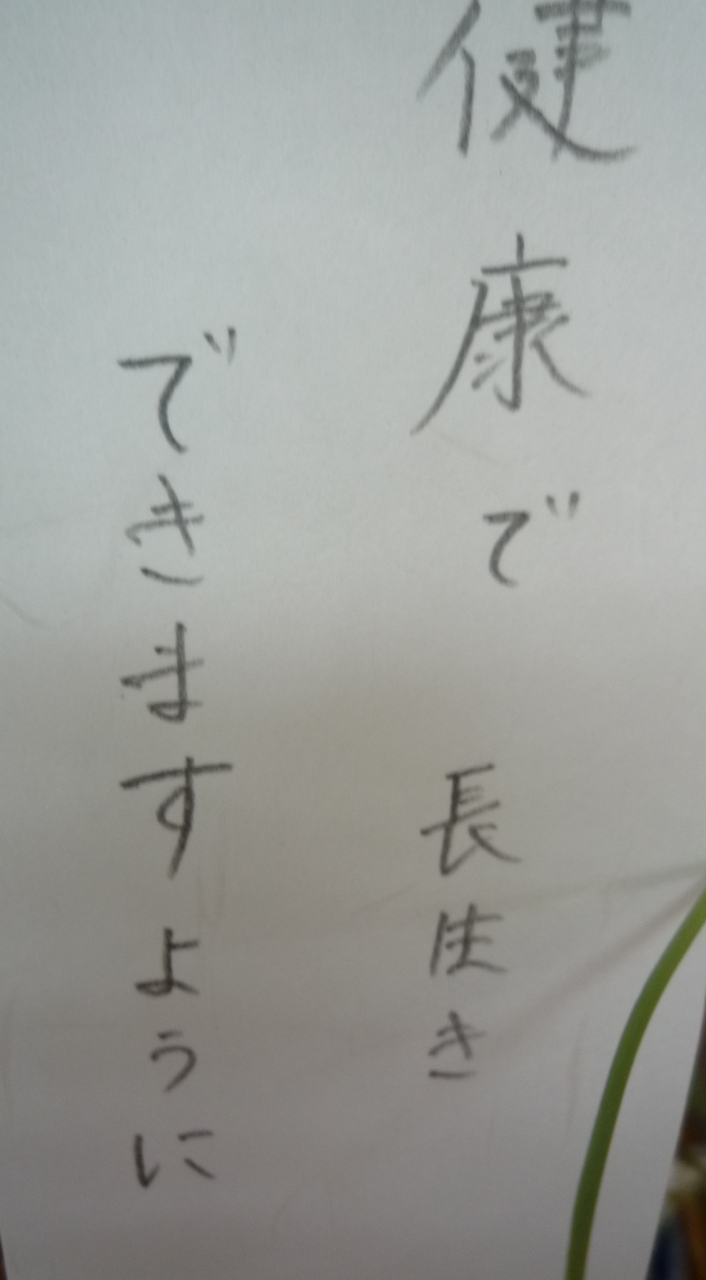 健康で 長生き
できますように